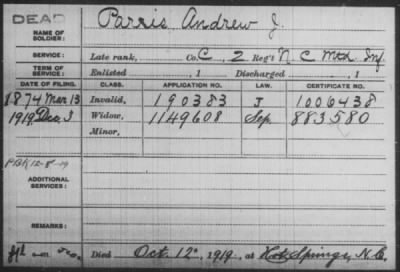 DEAD
NAME OF SOLDIER: Parris Andrew J.
SERVICE: Late rank, Co. C, 2 Reg't N. C. Mtd. Inf.
TERM OF SERVICE: Enlisted , 1 Discharged , 1
DATE OF FILING. CLASS. APPLICATION NO. LAW. CERTIFICATE NO.
1874 Mar 13 Invalid, 190383 J 1006438
1919, Dec. 3 Widow, 1149608 Sep 883580
Minor,
PBR 12-8-19
ADDITIONAL SERVICES:
REMARKS:
Died Oct. 12", 1919, at Hot Springs, N. C.